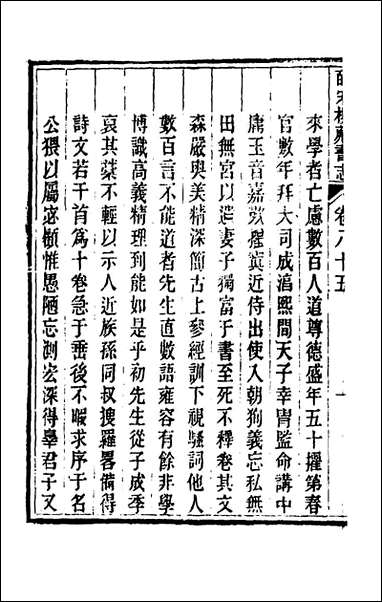 皕宋樓藏書志
卷八十五
來學者亡慮數百人道尊德盛年五十擢第春
官數年拜大司成湻熙間天子幸冑監命講中
庸玉音嘉歎擢寘近侍出使入朝狥義忘私無
田無宮以遺妻子獨富于書至死不釋卷其文
森嚴與美精深簡古上參經訓下視騷詞他人
數百言不能道者先生直數語雍容有餘非學
博識高義精理到能如是乎初先生從子成季
哀其槀不輕以示人近族孫同叔搜羅畧備得
詩文若干首爲十卷急于垂後不暇求序于名
公猥以屬宓顧惟愚陋忘測宏深得舉君子又